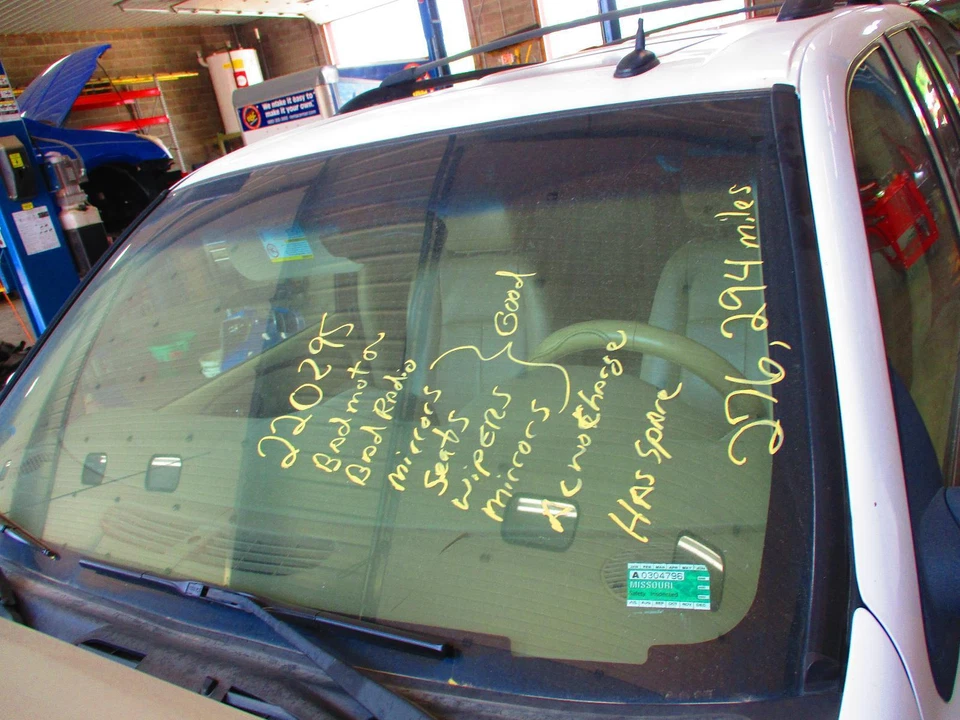 We make it easy to
make it your own.
220295
Bad motor
Bad Radio
mirrors
Seats
wipers
mirrors
Good
AC no charge
HAS Spare
276,294 miles
A 0304798
MISSOURI